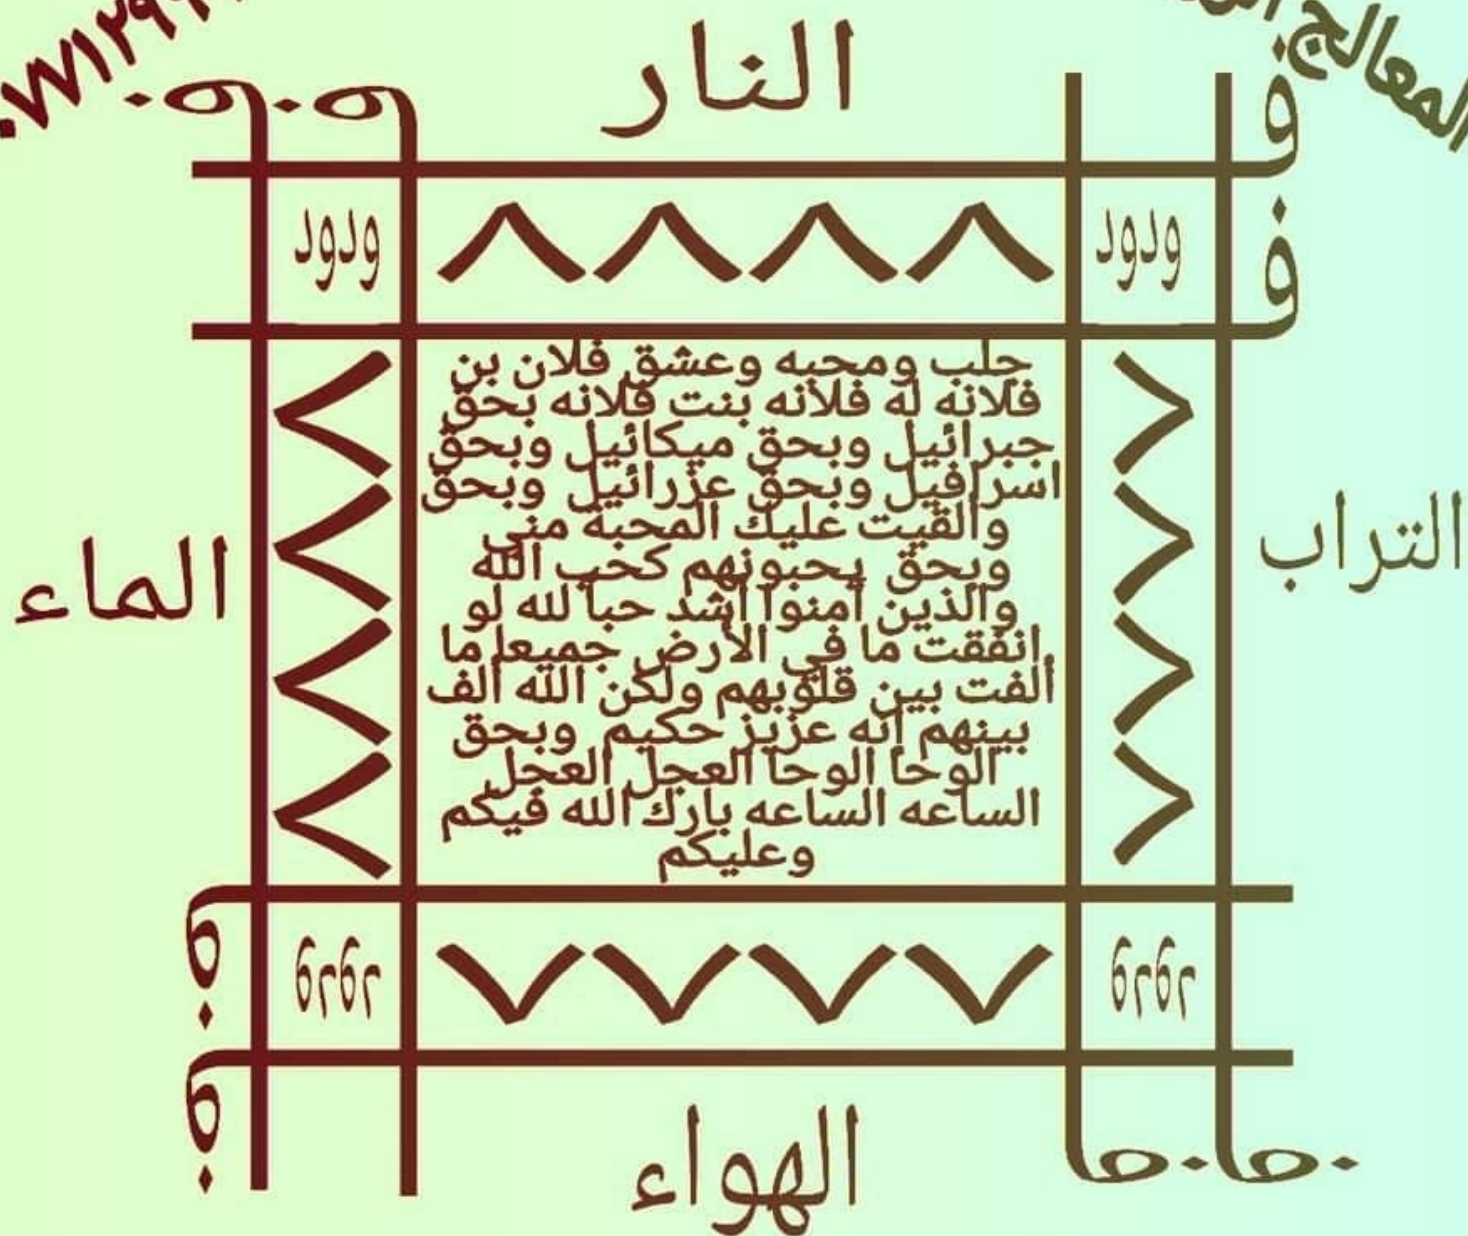 المعالج
٠٧٧١٢٩
النار
ف
ف
ودود ٨ ٨ ٨ ٨ ودود
جلب ومحبه وعشق فلان بن
فلانه له فلانه بنت فلانه بحق
جبرائيل وبحق ميكائيل وبحق
اسرافيل وبحق عزرائيل وبحق
وألقيت عليك المحبة مني
وبحق يحبونهم كحب الله
والذين آمنوا أشد حبا لله لو
انفقت ما في الأرض جميعا ما
ألفت بين قلوبهم ولكن الله ألف
بينهم إنه عزيز حكيم وبحق
الوحا الوحا العجل العجل
الساعه الساعه بارك الله فيكم
وعليكم
التراب
الماء
ودود ٧ ٧ ٧ ٧ ودود
الهواء